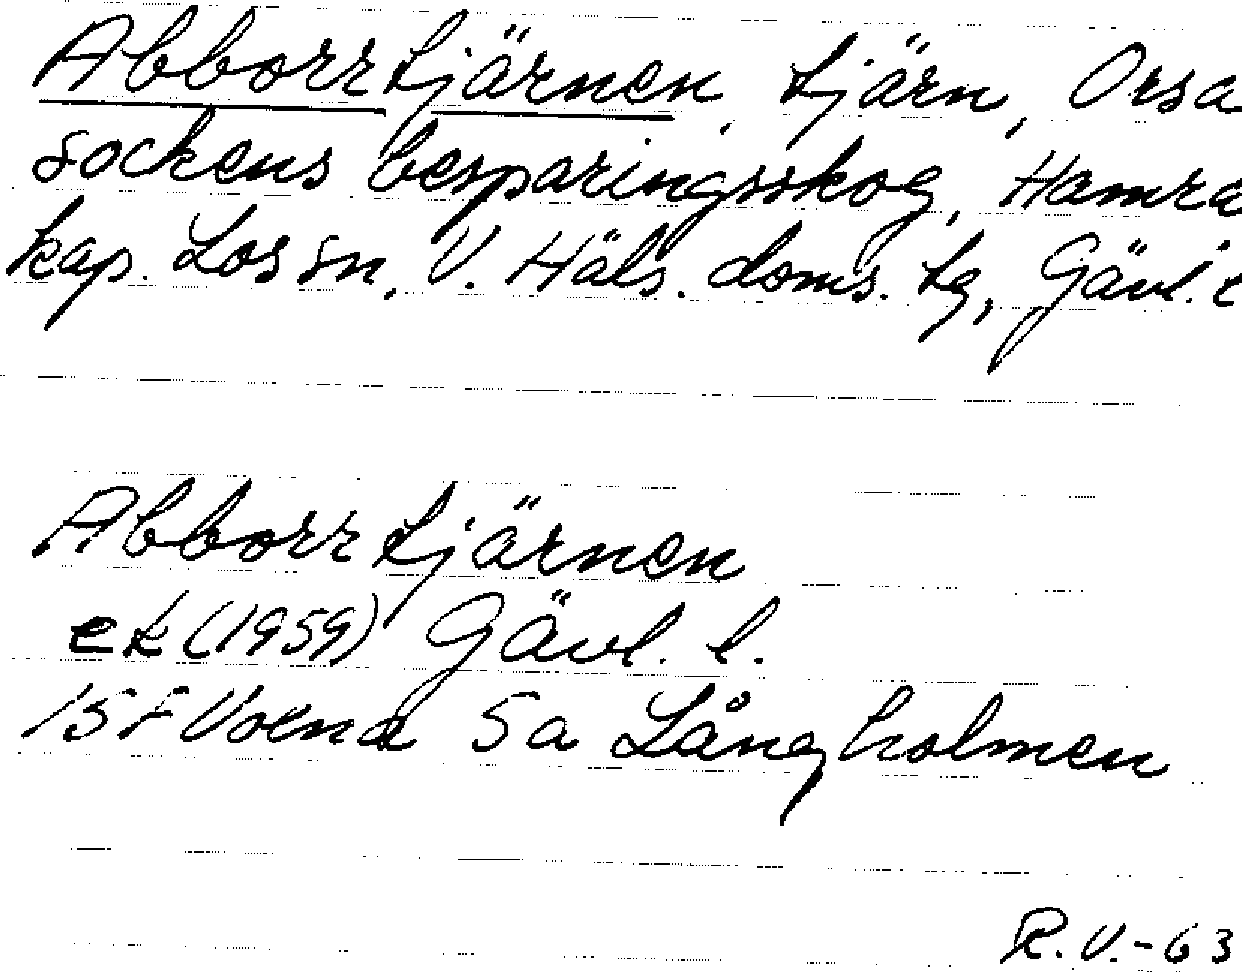 Abborrtjärnen, tjärn, Orsa
sockens besparingsskog, Hamra
kap. Los sn, V. Häls. doms. tg, Gävl. l
Abborrtjärnen
ek (1959) Gävl. l.
15F Voxna 5a Långholmen
R.V.-63